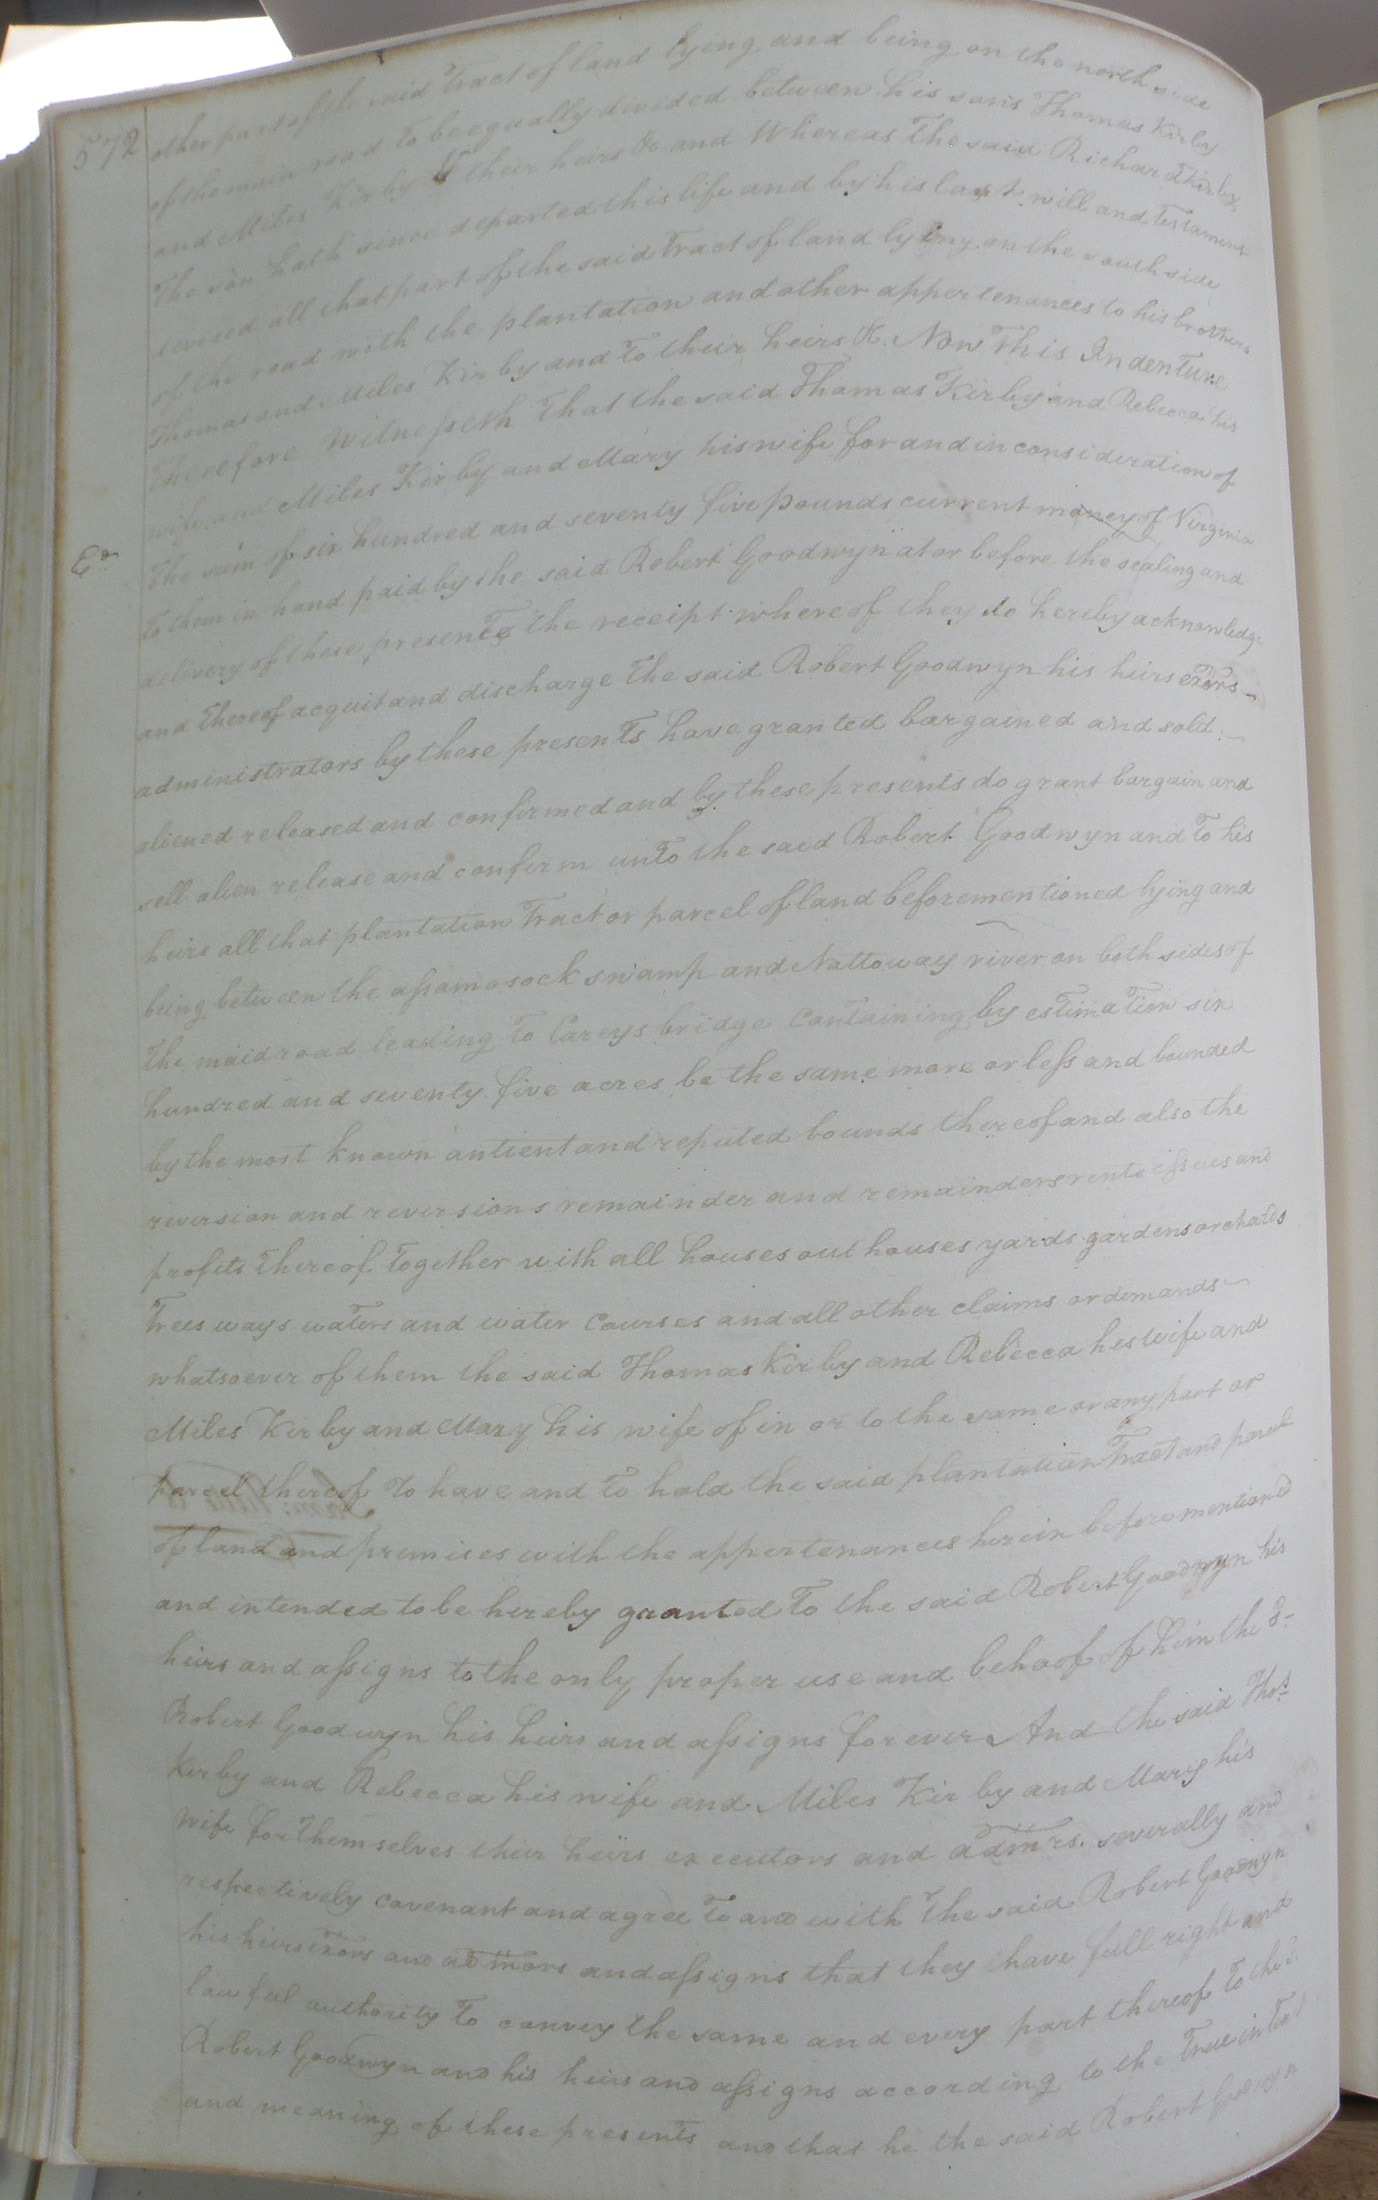 572
other part of the said Tract of land lying and being on the north side
of the main road to be equally divided between his sons Thomas Kirby
and Miles Kirby & their heirs &c and Whereas The said Richard Kirby
The son hath since departed this life and by his last will and Testament
devised all that part of the said Tract of land lying on the south side
of the road with the plantation and other appertenances to his brothers
Thomas and Miles Kirby and To their heirs &c. Now This Indenture
Therefore Witnesseth That the said Thomas Kirby and Rebecca his
wife and Miles Kirby and Mary his wife for and in consideration of
The sum of six hundred and seventy five pounds current money of Virginia
Ex
To them in hand paid by the said Robert Goodwyn at or before the sealing and
delivery of these presents the receipt whereof they do hereby acknowledge
and Thereof acquit and discharge The said Robert Goodwyn his heirs exors
administrators by these presents have granted bargained and sold
aliened released and confirmed and by these presents do grant bargain and
sell alien release and confirm unto the said Robert Goodwyn and To his
heirs all that plantation Tract or parcel of land beforementioned lying and
being between the assamosock swamp and Nattoway river on both sides of
The maid road leading To Careys bridge Containing by estimation six
hundred and seventy five acres be the same more or less and bounded
by the most known antient and reputed bounds thereof and also the
reversion and reversions remainder and remainders rents issues and
profits Thereof Together with all houses outhouses yards gardens orchards
Trees ways waters and water Courses and all other claims or demands
whatsoever of them the said Thomas Kirby and Rebecca his wife and
Miles Kirby and Mary his wife of in or to the same or any part or
parcel thereof To have and To hold the said plantation Tract and parcel
of land and premises with the appertenances herein before mentioned
and intended to be hereby granted To the said Robert Goodwyn his
heirs and assigns to the only proper use and behoof of him the sd
Robert Goodwyn his heirs and assigns forever And the said Thos
Kirby and Rebecca his wife and Miles Kirby and Mary his
Wife for Themselves their heirs executors and admrs. severally and
respectively covenant and agree To and with The said Robert Goodwyn
his heirs exors and admors and assigns that they have full right and
lawful authority To convey the same and every part thereof To the sd
Robert Goodwyn and his heirs and assigns according to the True intent
and meaning of these presents and that he the said Robert Goodwyn